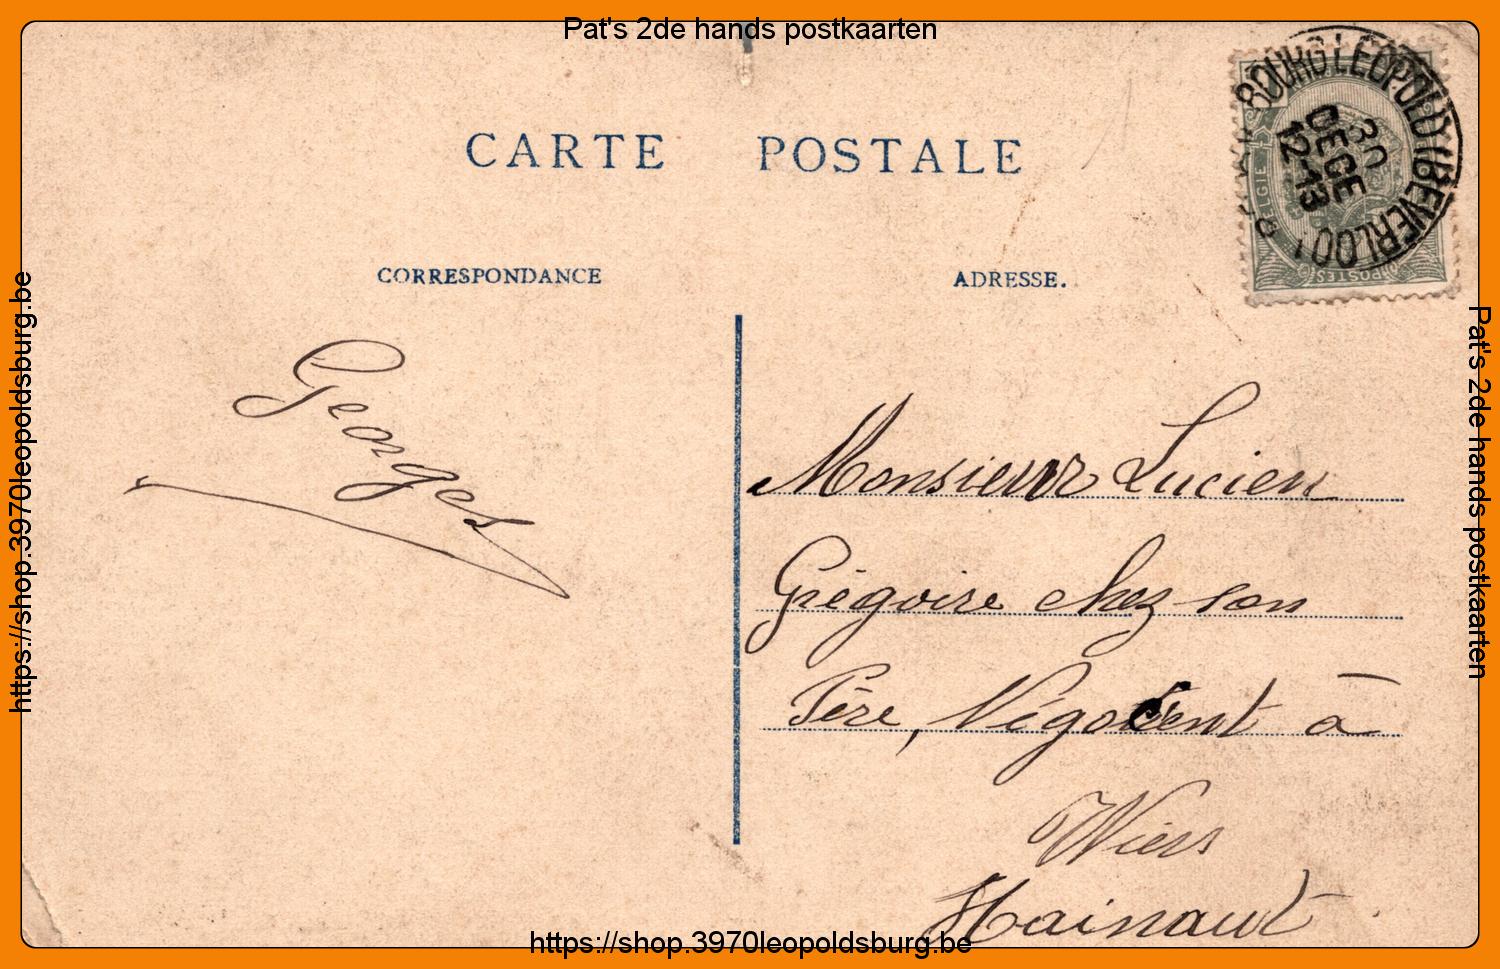 Pat's 2de hands postkaarten
CARTE POSTALE
BOURG LEOPOLD (BEVERLOO)
30
DECE
12-13
BELGIE
POSTES
CORRESPONDANCE
ADRESSE.
Georges
Monsieur Lucien
Grégoire chez son
Père, Négocient à
Wiers
Hainaut
https://shop.3970leopoldsburg.be
Pat's 2de hands postkaarten
https://shop.3970leopoldsburg.be